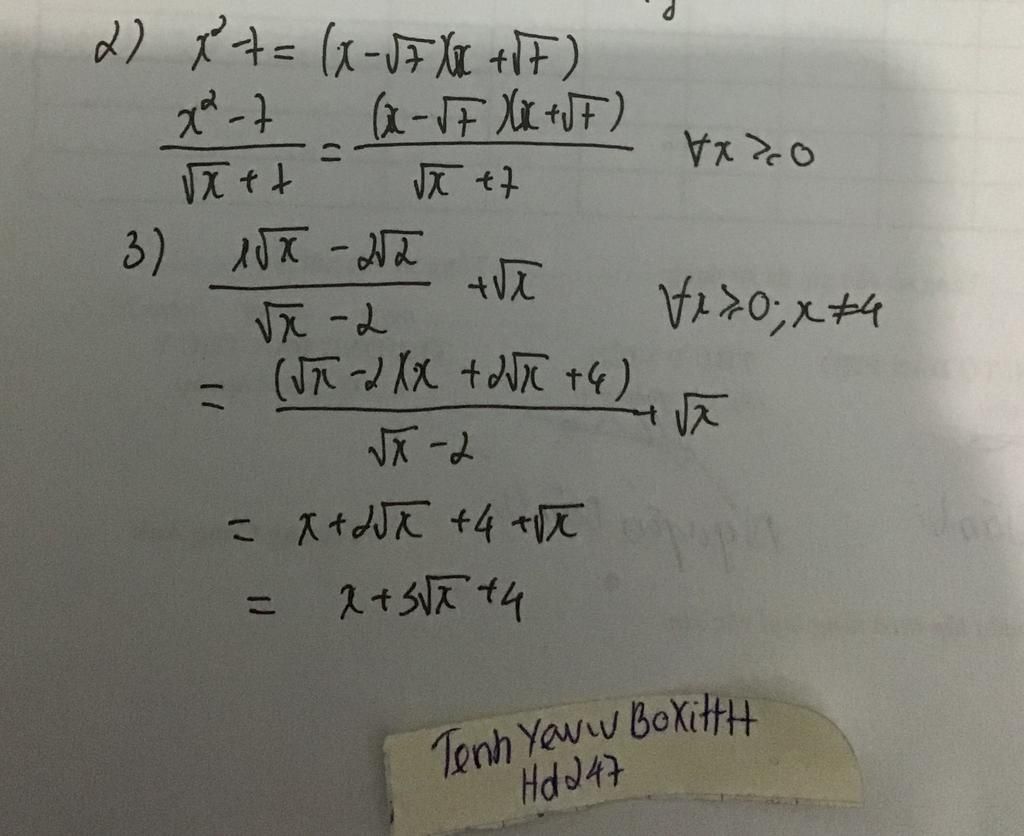 2) x² - 7 = (x - √7)(x + √7)
(x² - 7)/(√x + 7) = ((x - √7)(x + √7))/(√x + 7) ∀x ≥ 0
3) (1√x - 2√2)/(√x - 2) + √x ∀x ≥ 0; x ≠ 4
= ((√x - 2)(x + 2√x + 4))/(√x - 2) + √x
= x + 2√x + 4 + √x
= x + 3√x + 4
Tenh Yewiw BoXiHH
Hd247